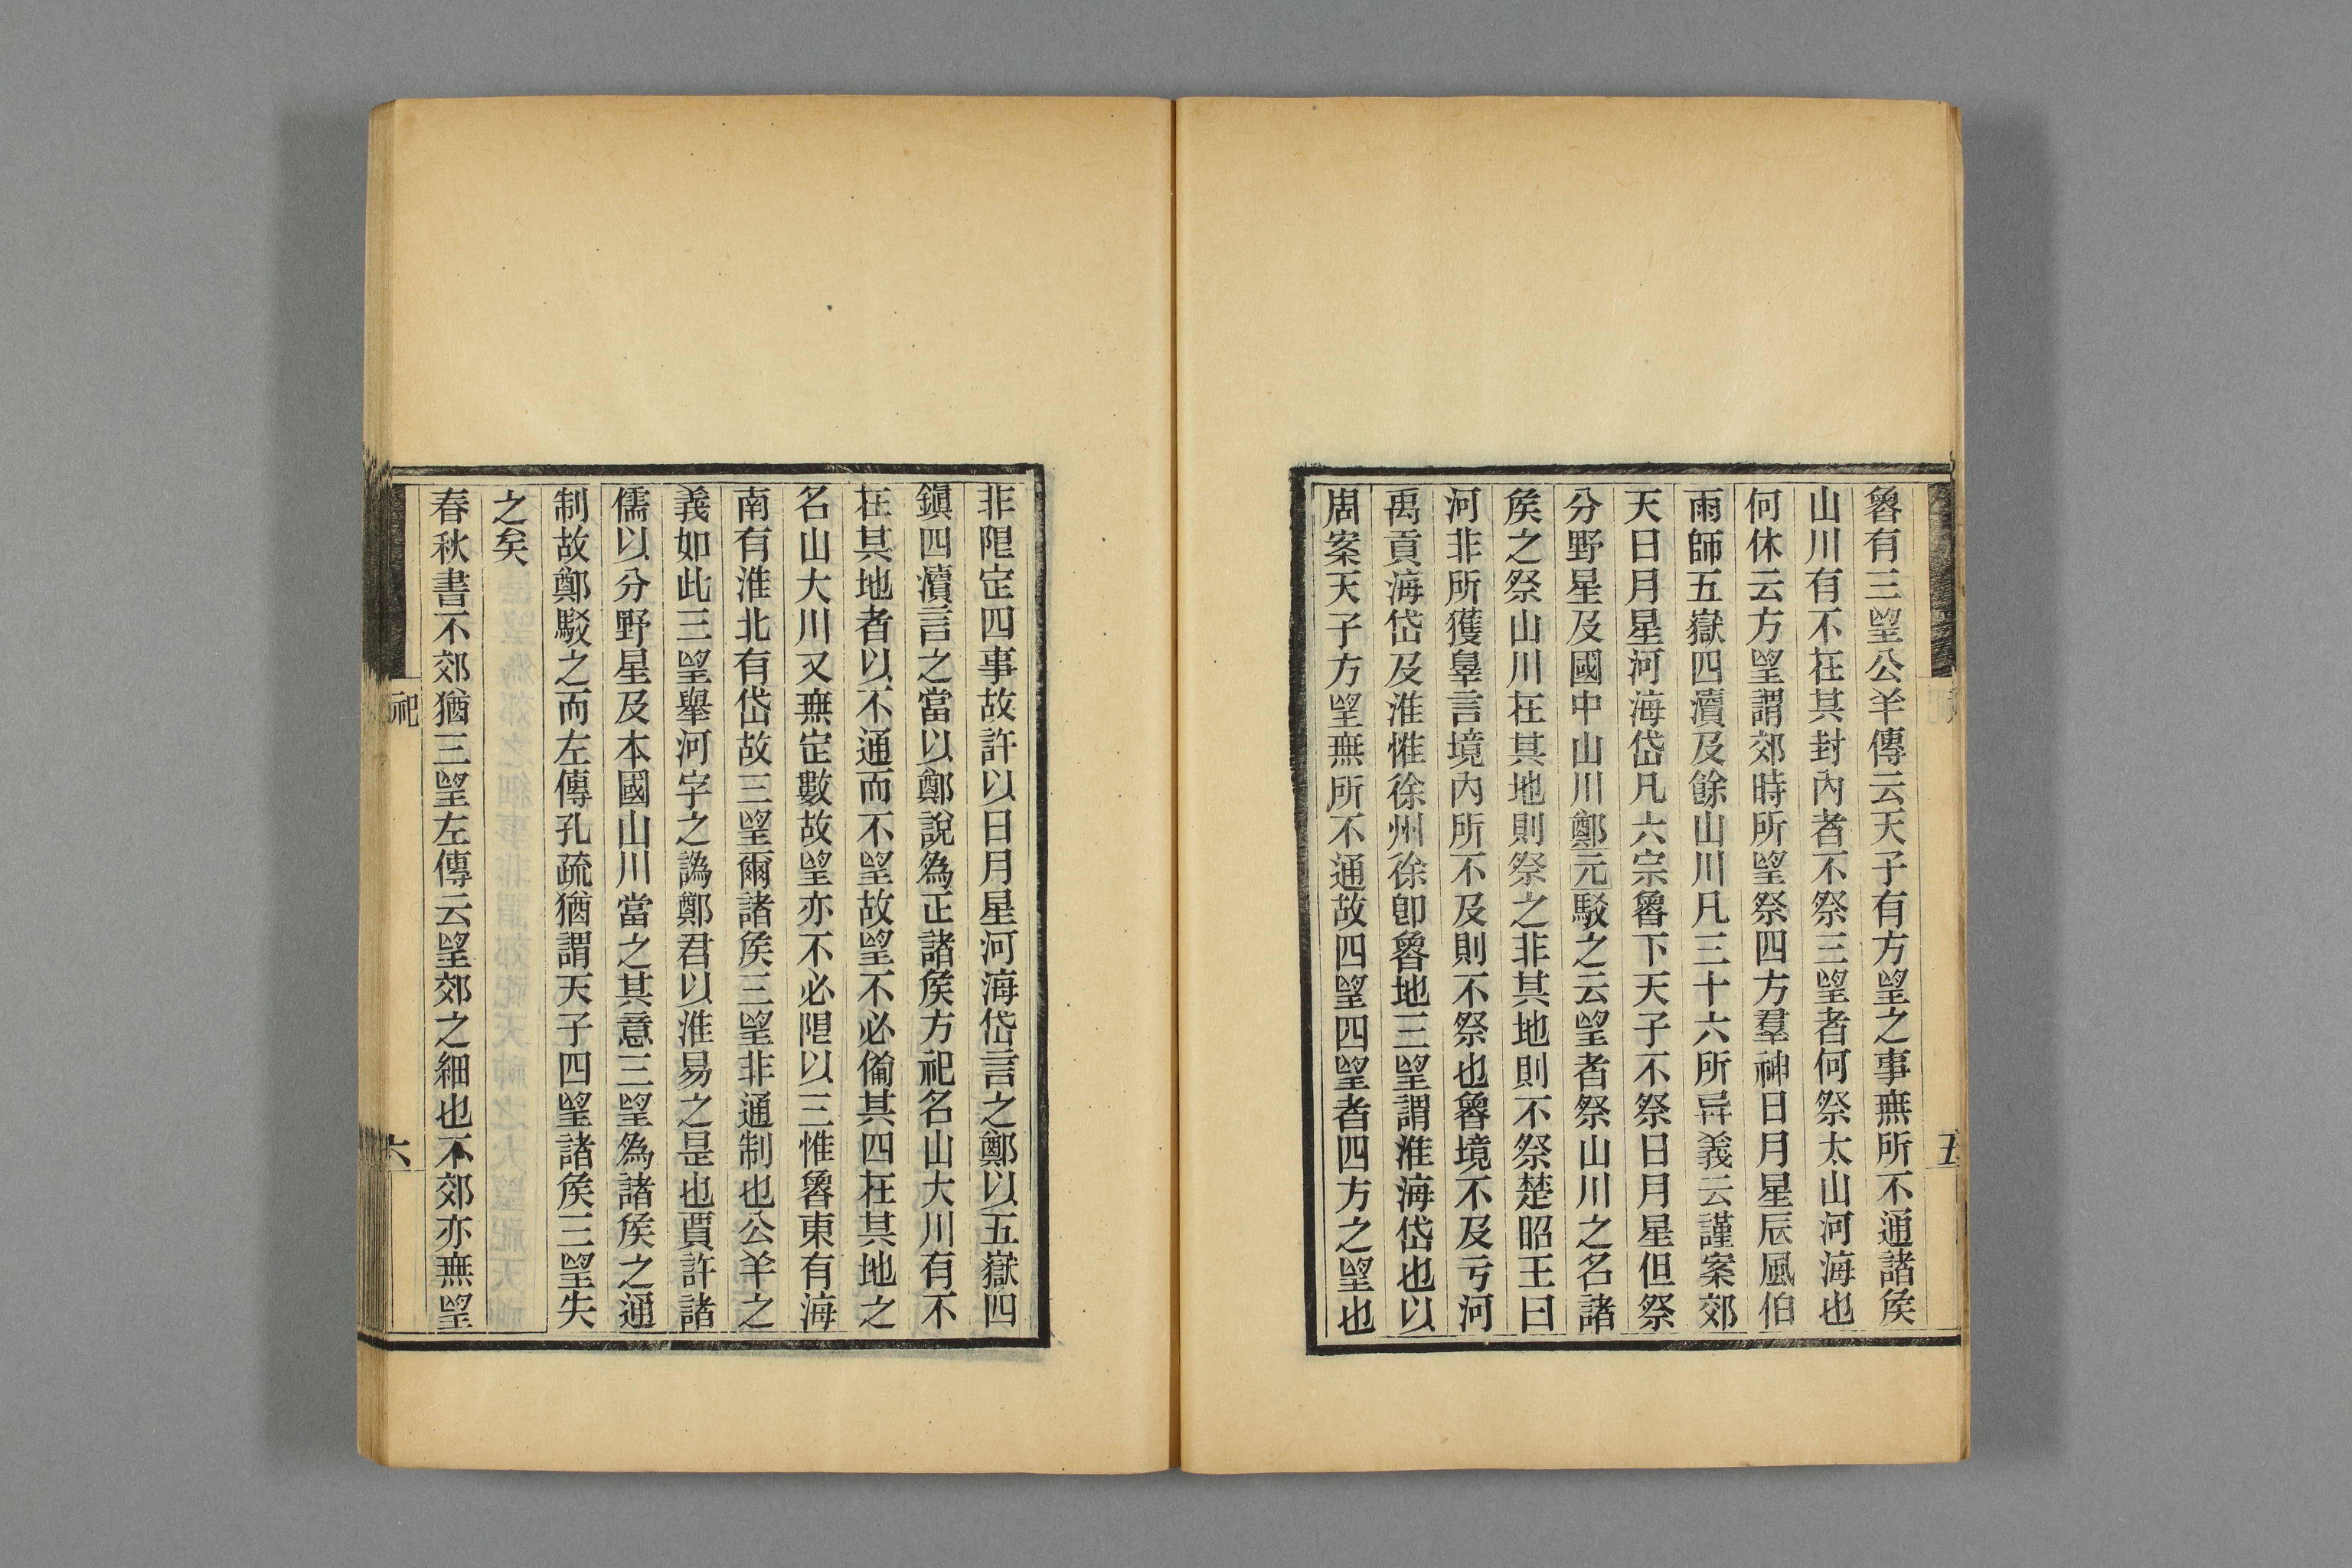 魯有三望公羊傳云天子有方望之事無所不通諸矦
山川有不在其封內者不祭三望者何祭太山河海也
何休云方望謂郊時所望祭四方羣神日月星辰風伯
雨師五嶽四瀆及餘山川凡三十六所异義云謹案郊
天日月星河海岱凡六宗魯下天子不祭日月星但祭
分野星及國中山川鄭元駁之云望者祭山川之名諸
矦之祭山川在其地則祭之非其地則不祭楚昭王曰
河非所獲辠言境內所不及則不祭也魯境不及亏河
禹貢海岱及淮惟徐州徐卽魯地三望謂淮海岱也以
周案天子方望無所不通故四望四望者四方之望也
五
非限定四事故許以日月星河海岱言之鄭以五嶽四
鎭四瀆言之當以鄭說為正諸矦方祀名山大川有不
在其地者以不通而不望故望不必備其四在其地之
名山大川又無定數故望亦不必限以三惟魯東有海
南有淮北有岱故三望爾諸矦三望非通制也公羊之
義如此三望舉河字之譌鄭君以淮易之是也賈許諸
儒以分野星及本國山川當之其意三望為諸矦之通
制故鄭駁之而左傳孔疏猶謂天子四望諸矦三望失
之矣
春秋書不郊猶三望左傳云望郊之細也不郊亦無望
祀
六